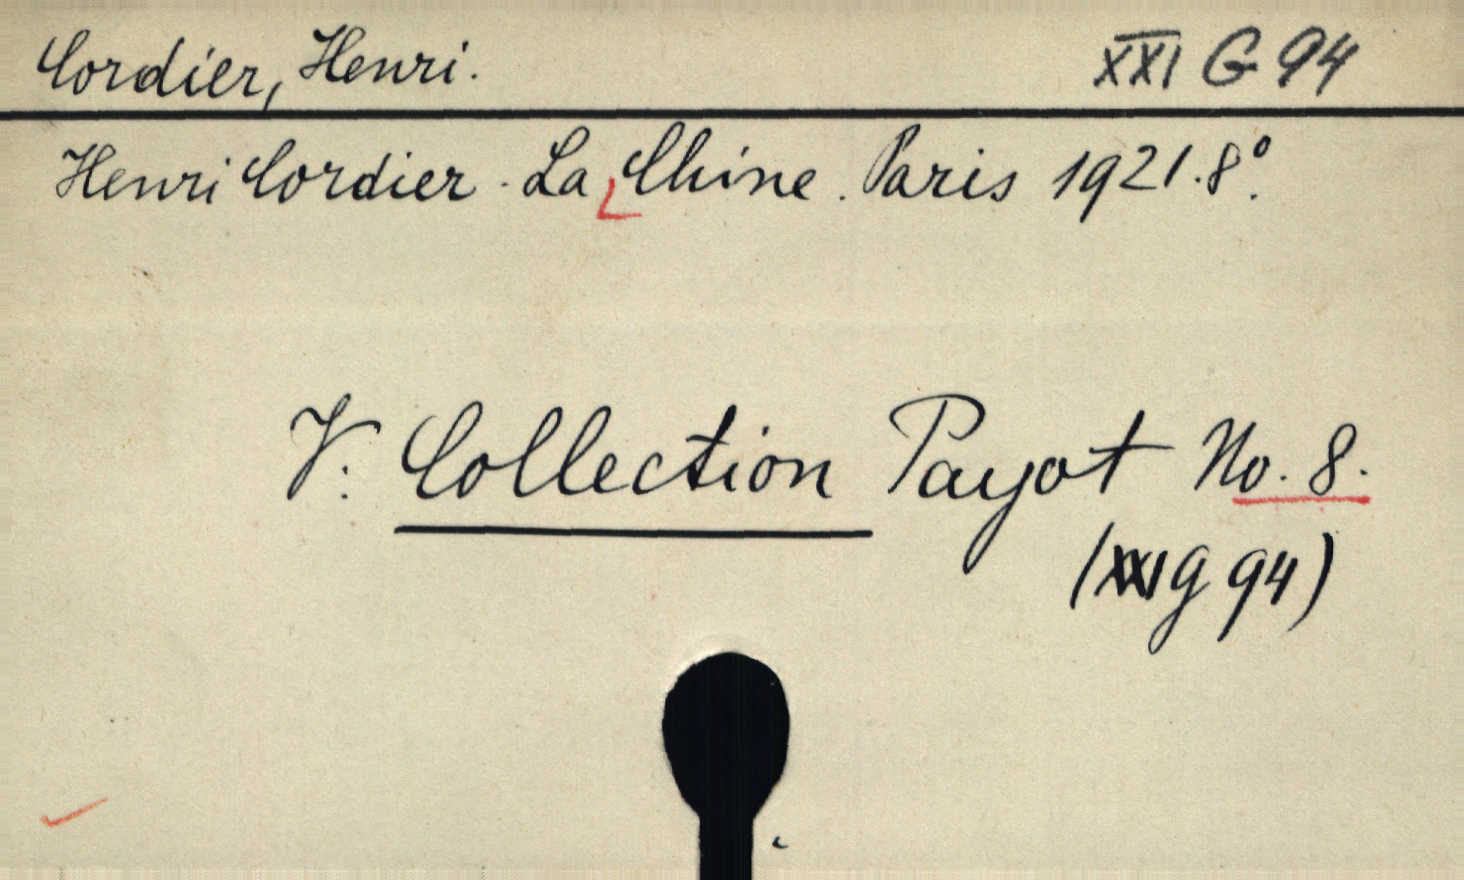 Cordier, Henri. XXI G 94
Henri Cordier. La Chine. Paris 1921. 8°.
V. Collection Payot No. 8.
(XXI g 94)